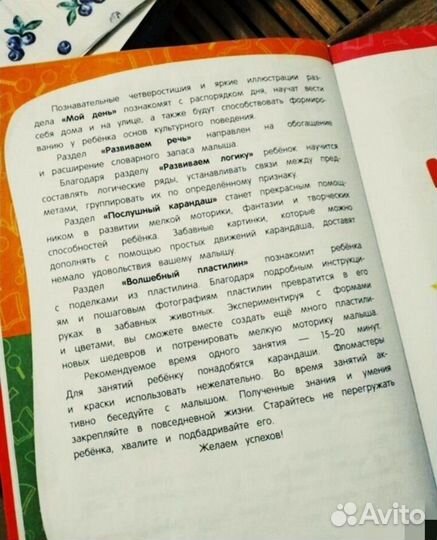 Познавательные четверостишия и яркие иллюстрации раз-
дела «Мой день» познакомят с распорядком дня, научат вести
себя дома и на улице, а также будут способствовать формиро-
ванию у ребёнка основ культурного поведения.
Раздел «Развиваем речь» направлен на обогащение
и расширение словарного запаса малыша.
Благодаря разделу «Развиваем логику» ребёнок научится
составлять логические ряды, устанавливать связи между пред-
метами, группировать их по определённому признаку.
Раздел «Послушный карандаш» станет прекрасным помощ-
ником в развитии мелкой моторики, фантазии и творческих
способностей ребёнка. Забавные картинки, которые можно
дополнять с помощью простых движений карандаша, доставят
немало удовольствия вашему малышу.
Раздел «Волшебный пластилин» познакомит ребёнка
с поделками из пластилина. Благодаря подробным инструкци-
ям и пошаговым фотографиям пластилин превратится в его
руках в забавных животных. Экспериментируя с формами
и цветами, вы сможете вместе создать ещё много пластили-
новых шедевров и потренировать мелкую моторику малыша.
Рекомендуемое время одного занятия — 15–20 минут.
Для занятий ребёнку понадобятся карандаши. Фломастеры
и краски использовать нежелательно. Во время занятий ак-
тивно беседуйте с малышом. Полученные знания и умения
закрепляйте в повседневной жизни. Старайтесь не перегружать
ребёнка, хвалите и подбадривайте его.
Желаем успехов!
Avito